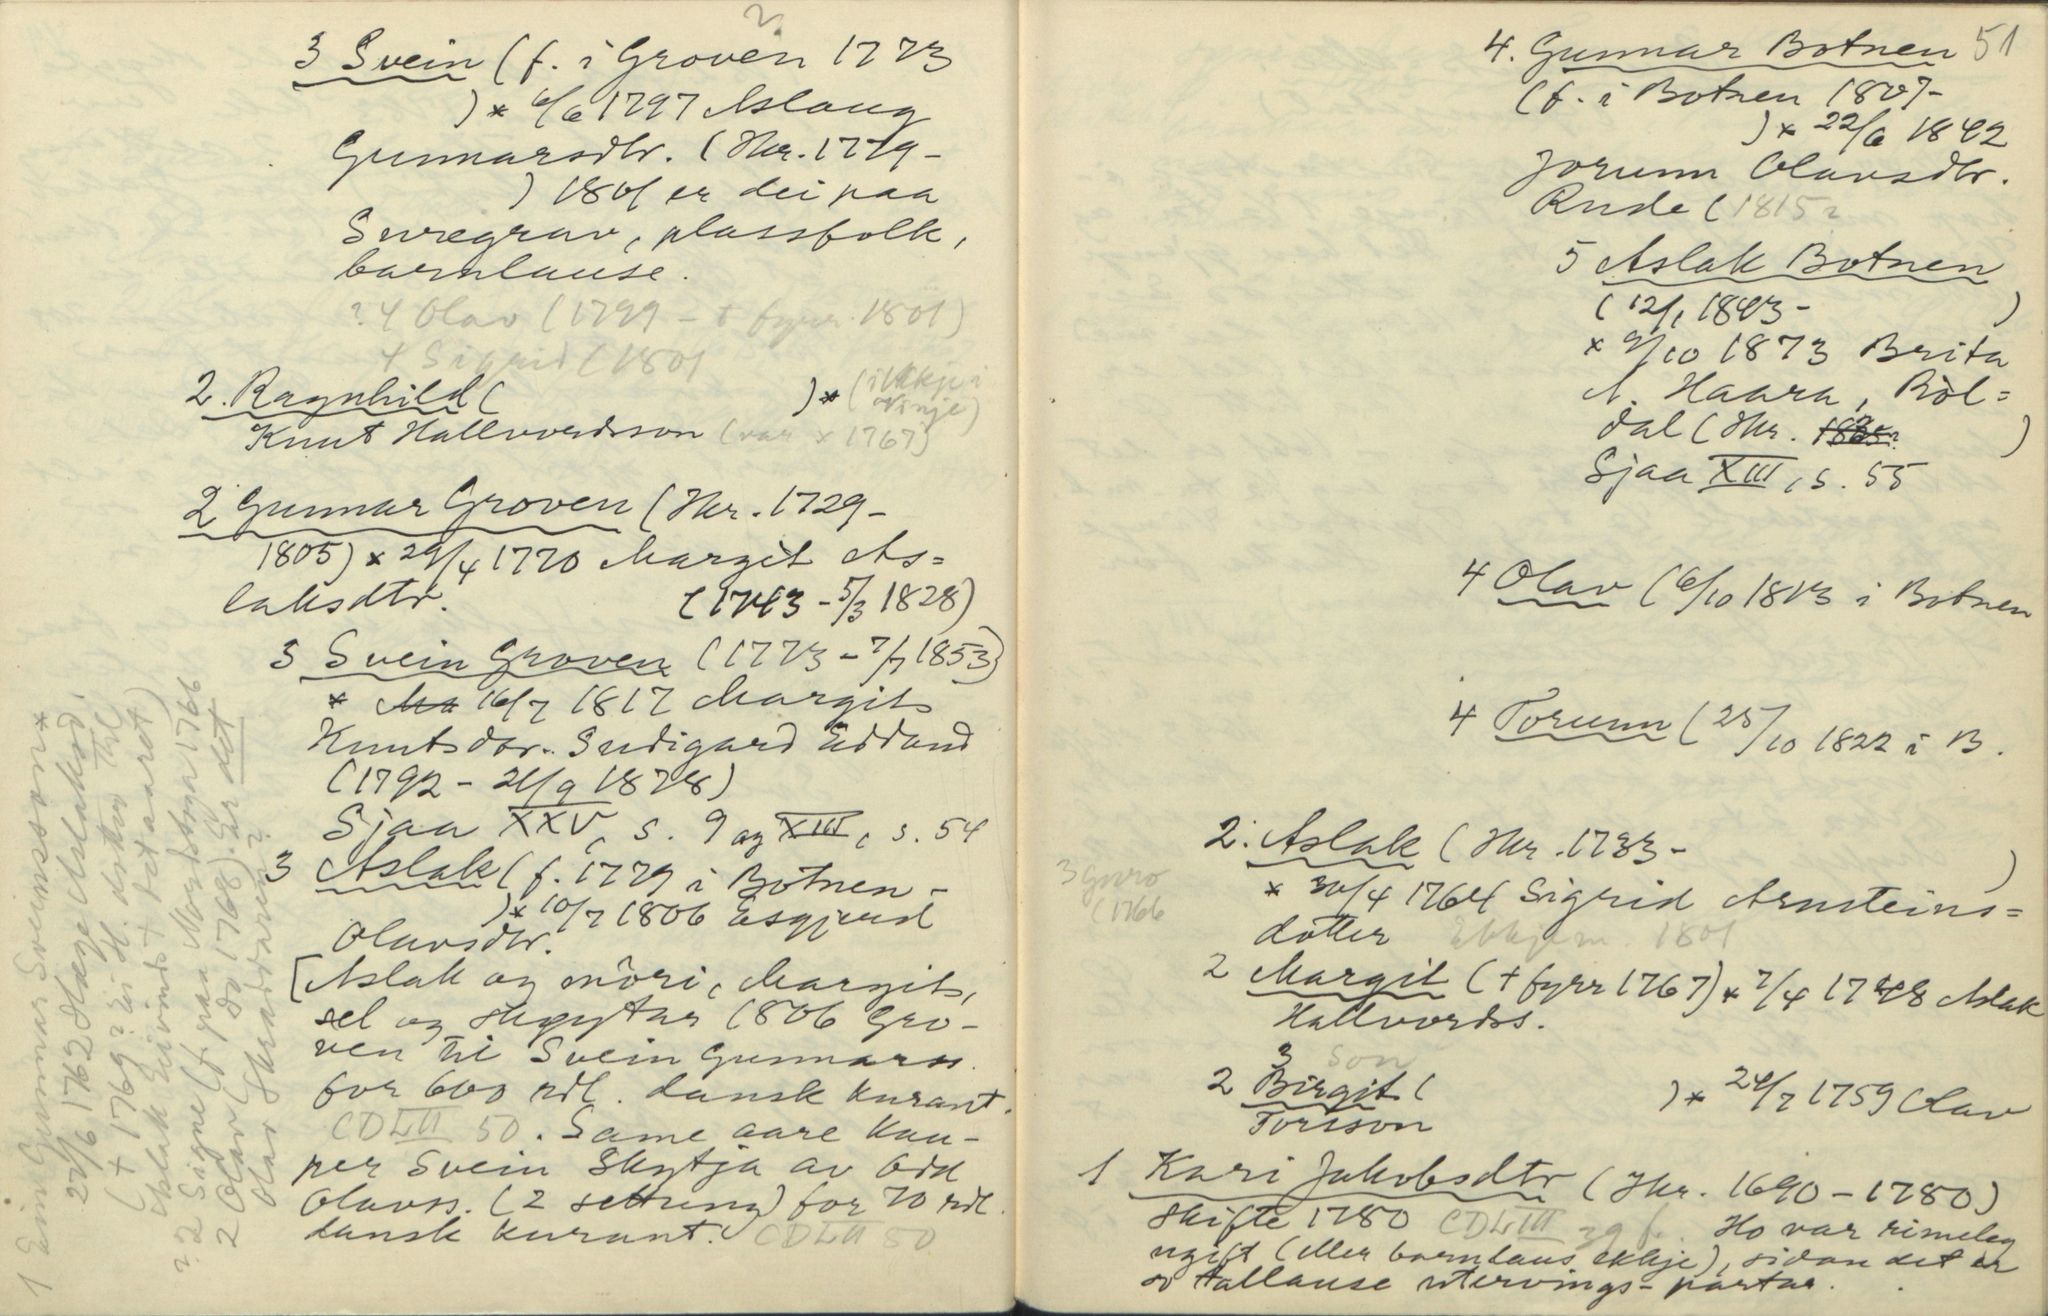 3 Svein (f. i Groven 1773
)* 6/6 1797 Aslaug
Gunnarsdtr. (Ikr. 1779 -
) 1801 er dei paa
Suregrav, plassfolk,
barnlause.
? 4 Olav (1799 - + fyrr 1801)
4 Sigrid (1801
2. Ragnhild ( )* (ikkje i
Vinje)
Knut Hallvordsson (var x 1767)
2 Gunnar Groven (Ikr. 1729 -
1805) x 29/4 1770 Margit As=
laksdtr. (1743 - 5/3 1828)
3 Svein Groven (1773 - 7/7 1853)
* 16/7 1817 Margit
Knutsdtr. Sudigard Edland
(1792 - 21/9 1878)
Sjaa XXV, s. 9 og XIII, s. 54
3 Aslak (f. 1779 i Botnen -
)* 10/7 1806 Esgjerd
Olavsdtr.
[Aslak og mori, Margit,
sel og skøytar 1806 Gro-
ven til Svein Gunnars.
for 600 rdl. dansk kurant.
CDLII 50. Same aare kau-
per Svein Skytja av Odd
Olavss. (2 settung) for 70 rdl.
dansk kurant. CDLII 50
1 Einn Gunnar Sveinsson *
27/6 1762 Hæge Aslaksd.
(+ 1769? Ei H. dotter til
Aslak Eivinds + det aaret)
? 2 Signe (f. paa 1766
2 Olav ( do 1768). Er det
Olav Skraddaren?
51
4. Gunnar Botnen
(f. i Botnen 1807 -
)* 22/6 1842
Jorunn Olavsdtr.
Rude (1815?
5 Aslak Botnen
(12/1 1843 - )
x 9/10 1873 Brita
A. Haara, Røl=
dal (Ikr. )
Sjaa XIII, s. 55
4 Olav (6/10 1813 i Botnen
4 Torunn (25/10 1822 i B.
2. Aslak (Ikr. 1733 - )
* 30/4 1764 Sigrid Arnsteins=
dotter Ekkjem. 1801
3 Guro
(1766
2 Margit (+ fyrr 1767) * 7/4 1748 Aslak
Hallvordss.
3 son
2 Birgit ( )* 24/7 1759 Olav
Torsson
1 Kari Jakobsdtr (Ikr. 1690 - 1780)
Skifte 1780 CDLIII 39 f. Ho var rimeleg
ugift (eller barnlaus ekkje), sidan det er
so tallause utervings-partar.